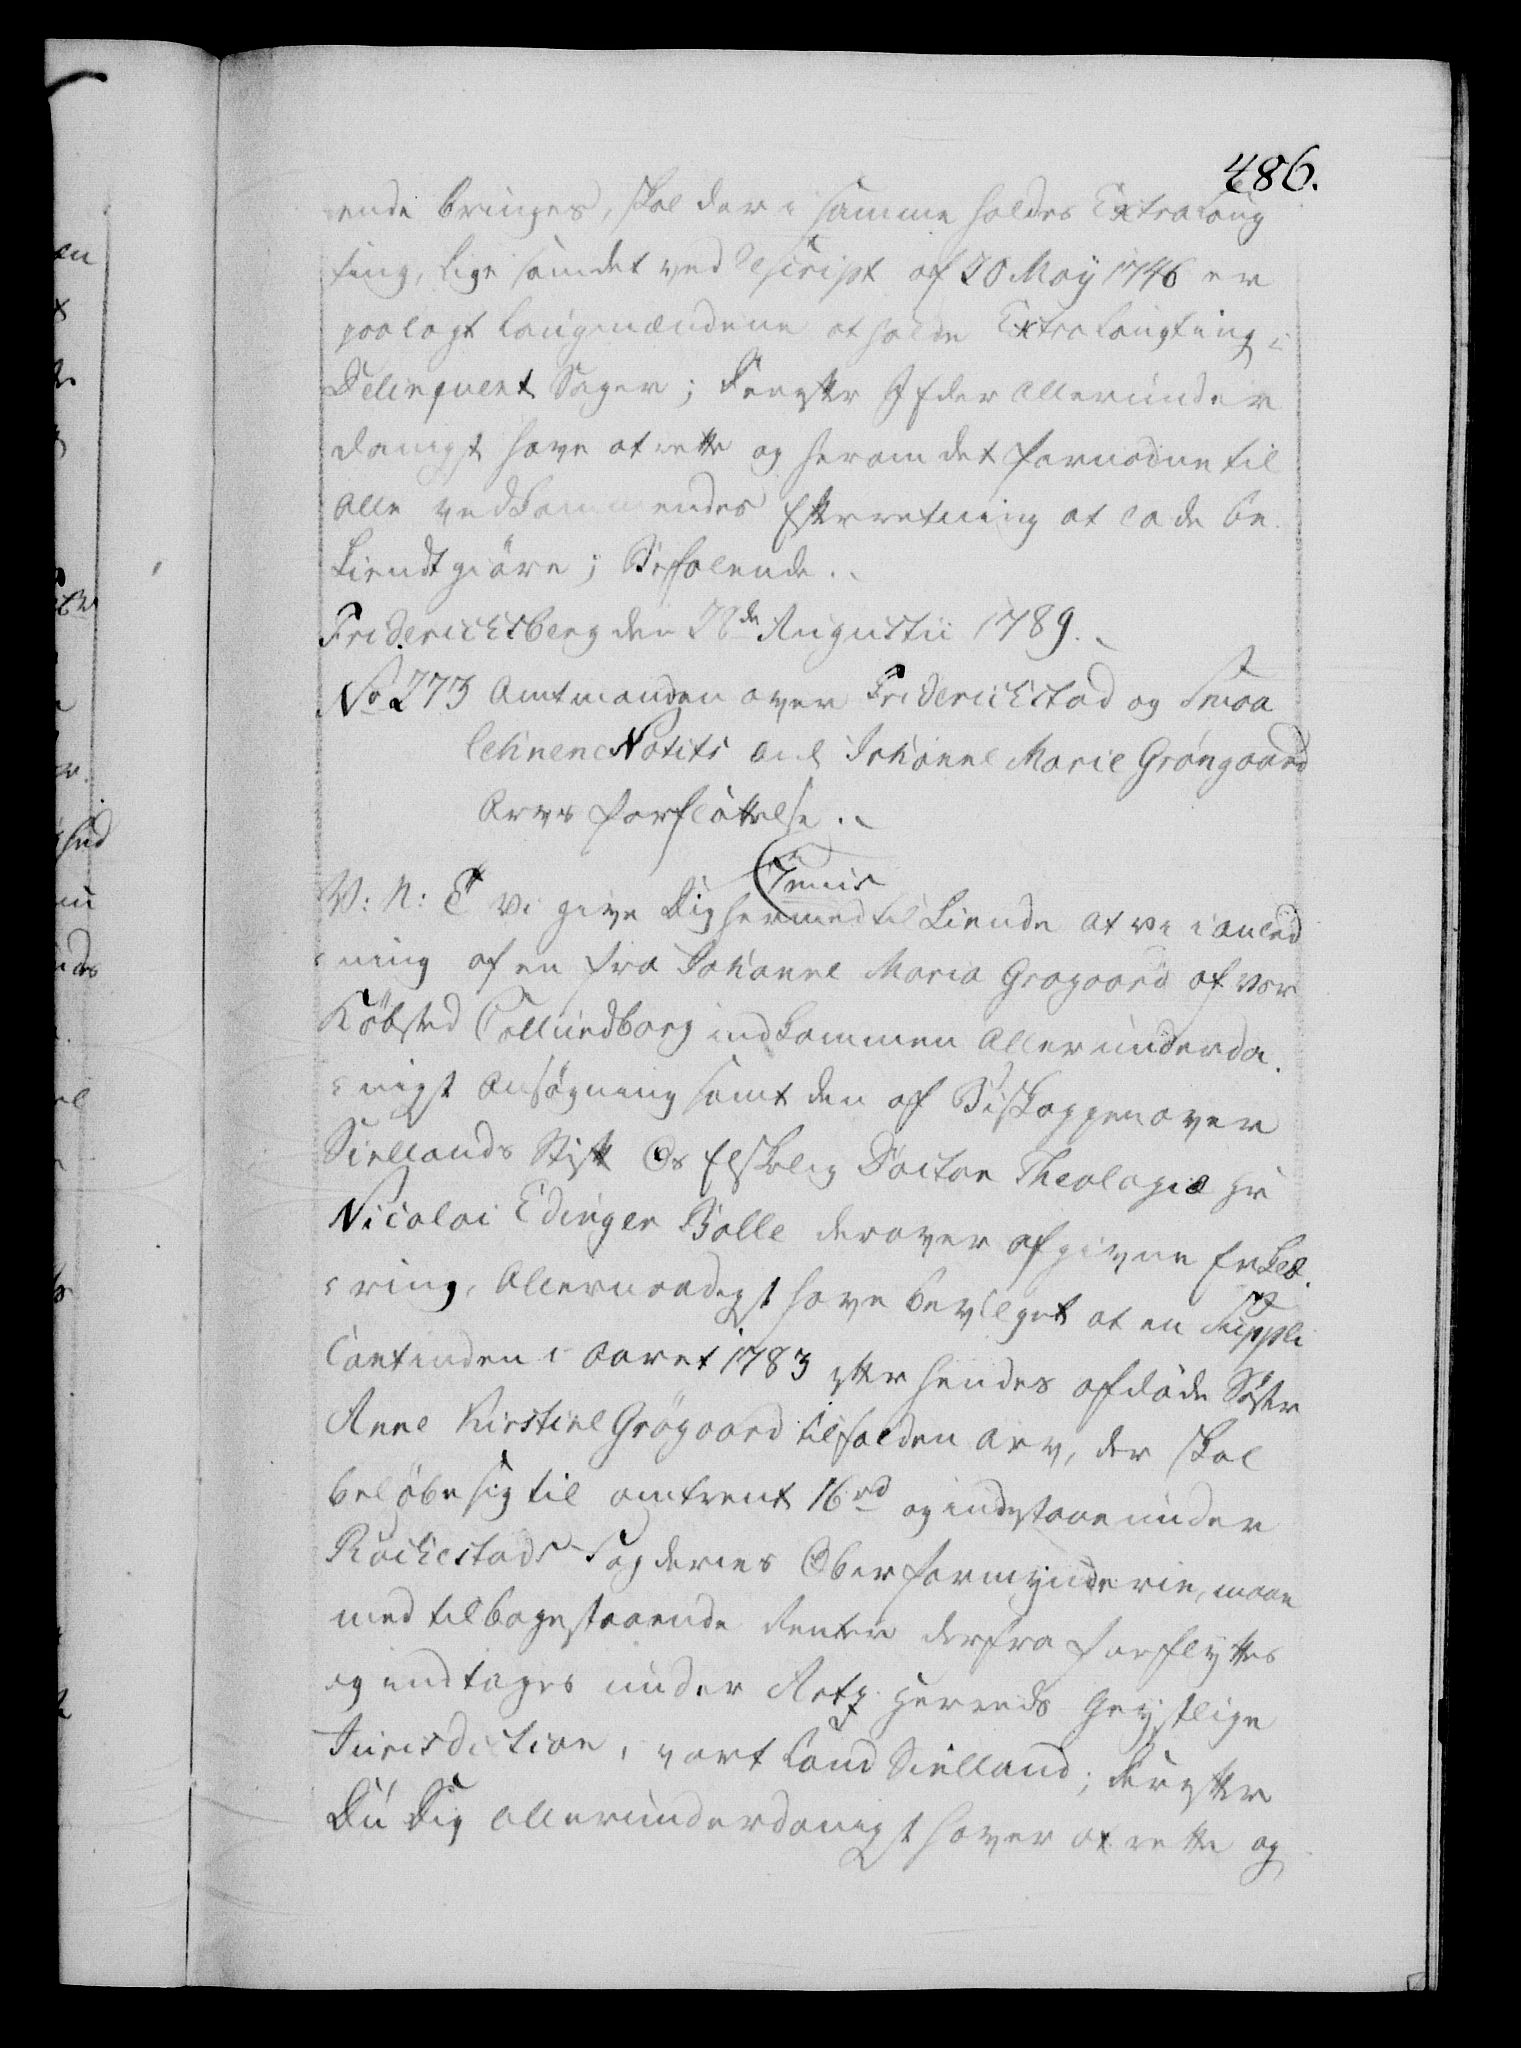 486.
ende bringes, skal der i samme holdes Extra Laug
ting, lige som det ved Rescript af 20 Maÿ 1746 er
paalagt Laugmændene at holde Extra Laugting i
Delinqvent Sager; Derefter I Eder Allerunder
danigst have at rette og herom det fornødne til
alle vedkommendes Efterretning at lade be
kiendtgiöre; Befalende.
Friderichsberg den 28de Augustii 1789.
No 273 Amtmanden over Friderichstad og Smaa
lehnene Notits ang Johanne Marie Gröngaard
Arvs forflöttelse.
Tenuis
V: N: C Vi give Dig hermed til kiende at vi i anled
ning af en fra Johanne Maria Grøgaard af vor
Köbsted Callundborg indkommen Allerunderda
nigst Ansögning samt den af Biskoppen over
Siellands Stift Os Elskelig Doctor Theologiæ Hr
Nicolai Edinger Balle derover afgivne Erklæ
ring, Allernaadigst have bevilget at en Suppli
cantinden i Aaret 1783 efter hendes afdöde Söster
Anne Kirstine Grögaard tilfalden Arv, der skal
belöbe sig til omtrent 16 rd og indestaae under
Rackestads Fogderies Overformynderie, maae
med tilbagestaaende Renter derfra forflyttes
og indtages under Artz Herreds Geystlige
Jurisdiction, i vort Land Sielland; Derefter
Du Dig allerunderdanigst haver at rette og